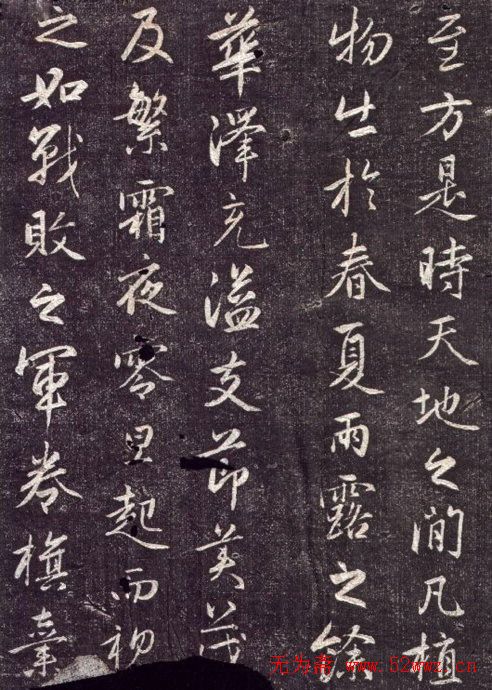 至方是時天地之間凡植
物出於春夏雨露之餘
華澤充溢支節美茂
及繁霜夜零旦起而視
之如戰敗之軍卷旗棄
无为斋 www.52wwz.cn